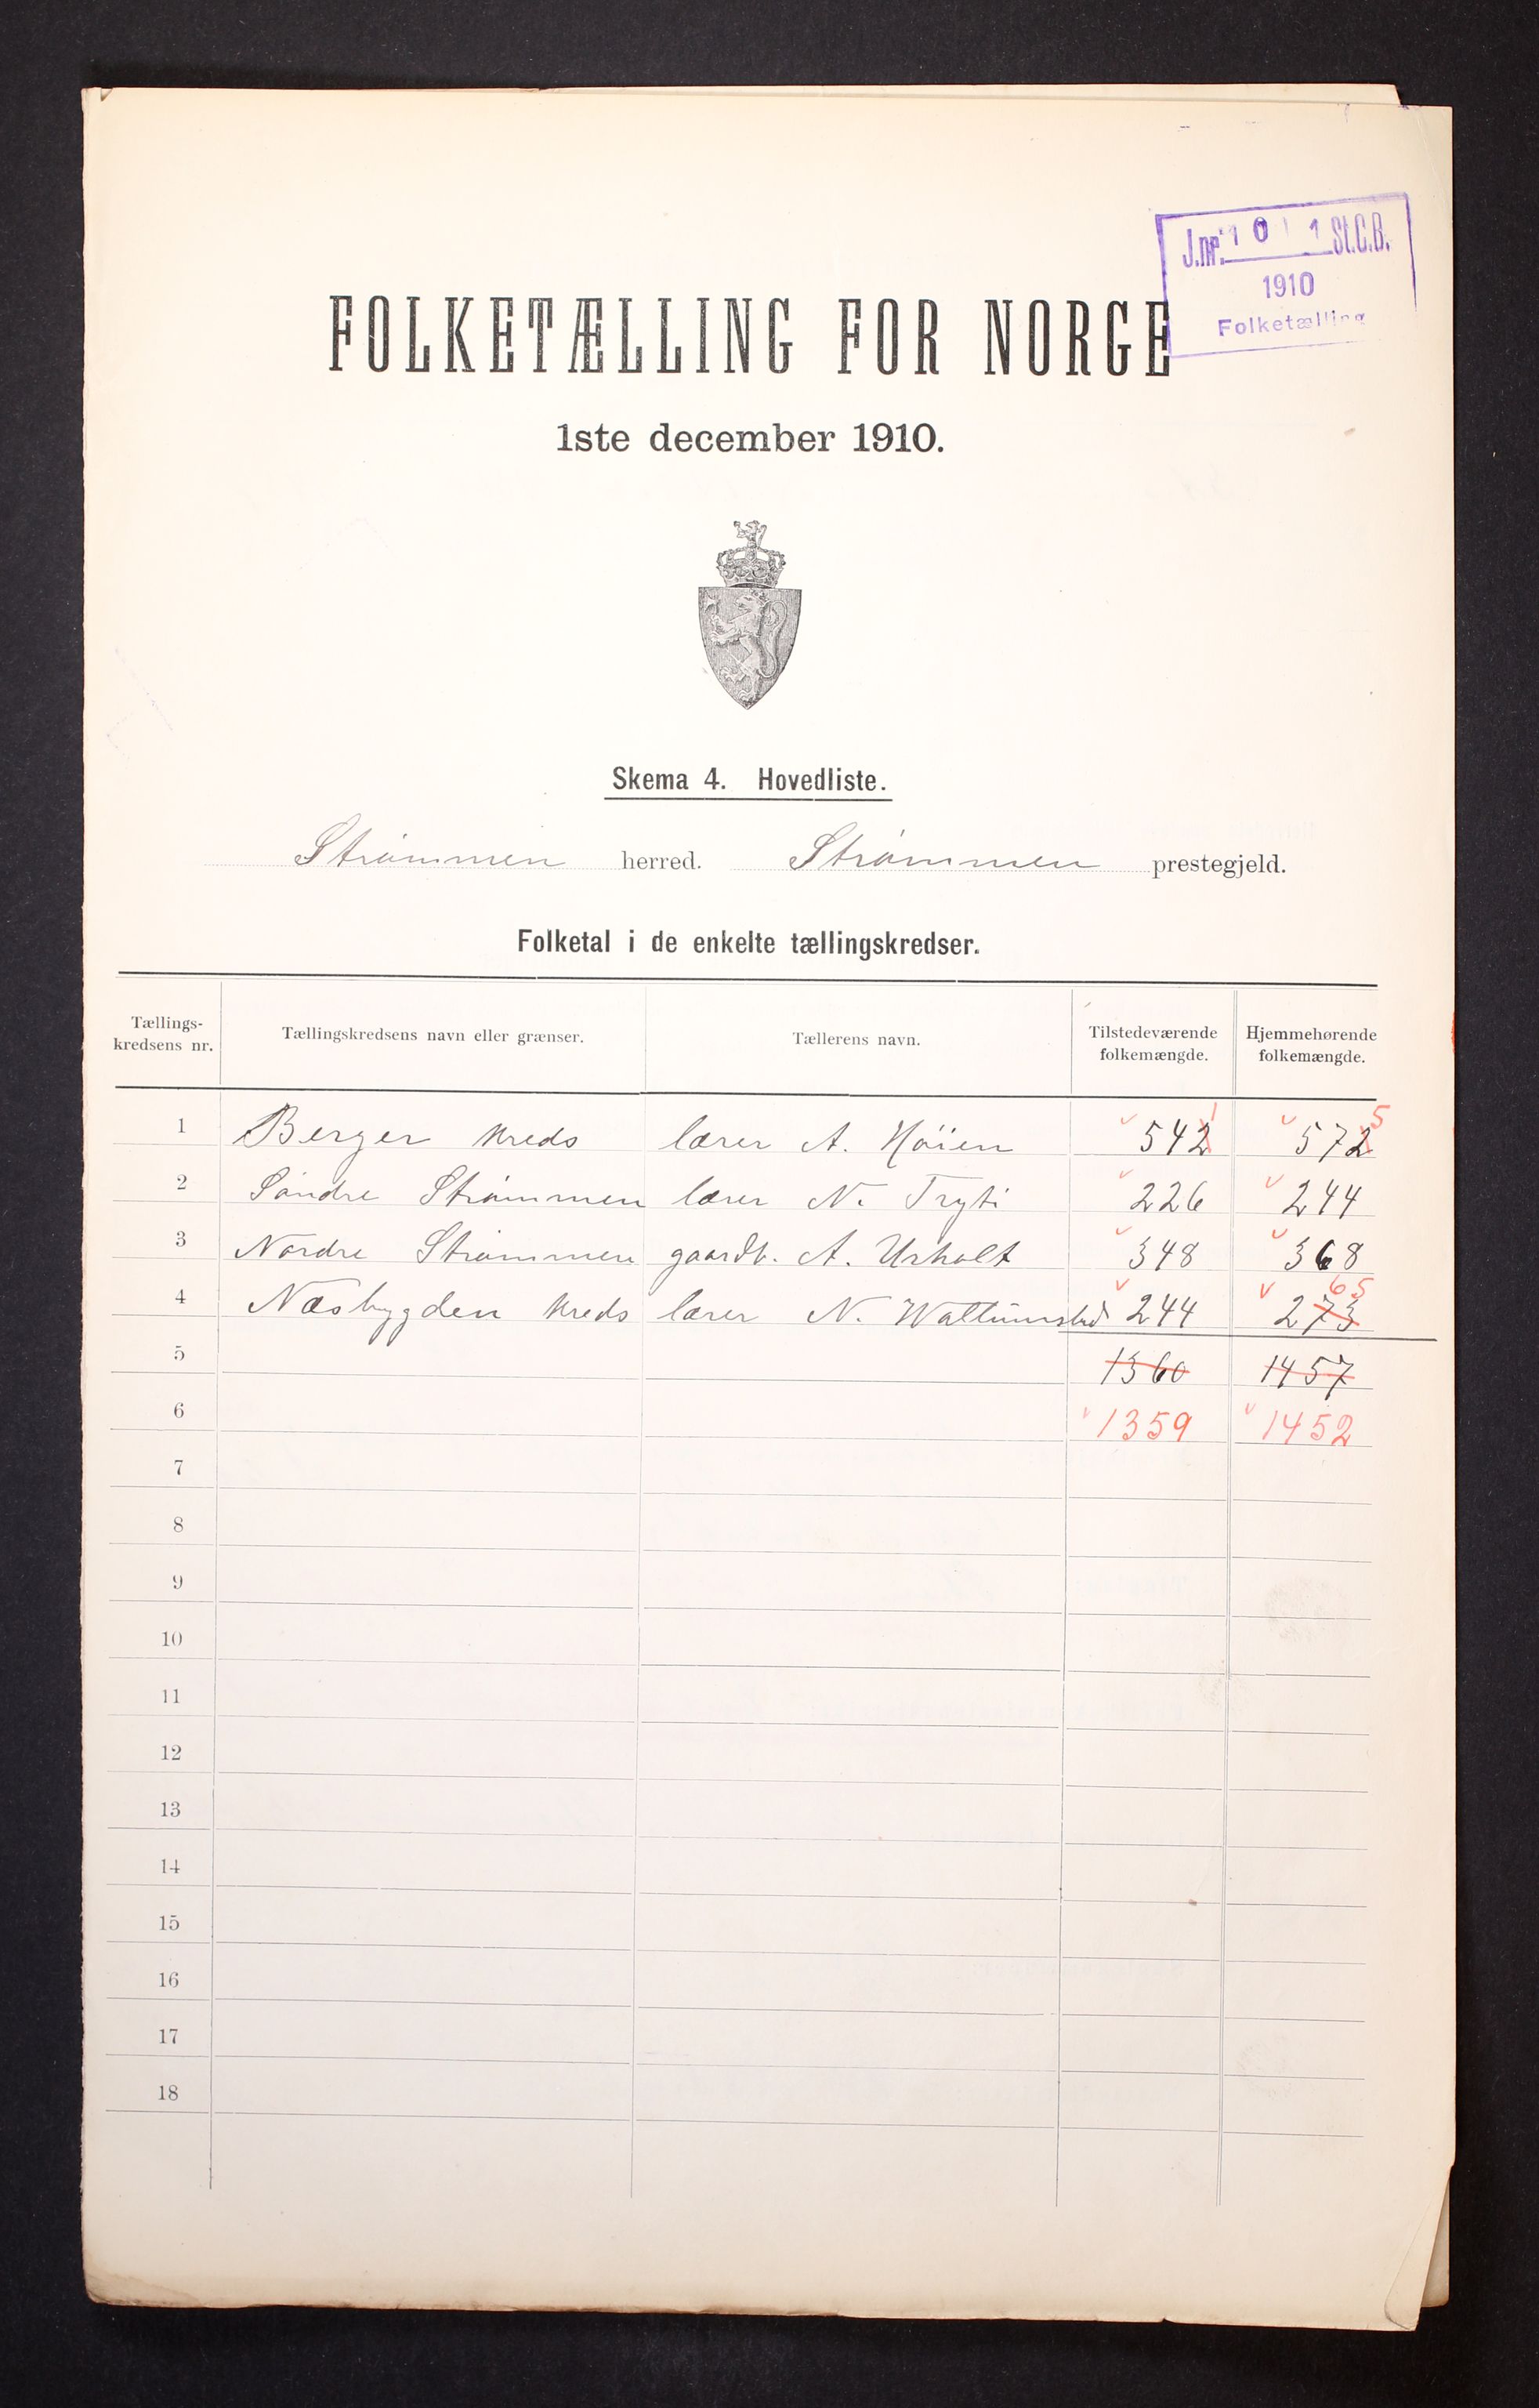 J.nr. 1 0 1 1 St.C.B.
1910
Folketælling
FOLKETÆLLING FOR NORGE
1ste december 1910.
Skema 4. Hovedliste.
Strømmen herred. Strømmen prestegjeld.
Folketal i de enkelte tællingskredser.
Tællings-kredsens nr. Tællingskredsens navn eller grænser. Tællerens navn. Tilstedeværende folkemængde. Hjemmehørende folkemængde.
1 Berger kreds lærer A. Höien 542 1 572 5
2 Söndre Strømmen lærer N. Tryti 226 244
3 Nordre Strømmen gaardb. A. Urholt 348 368
4 Næsbygden kreds lærer N. Wattumstad 244 273 65
5 1360 1457
6 1359 1452
7
8
9
10
11
12
13
14
15
16
17
18